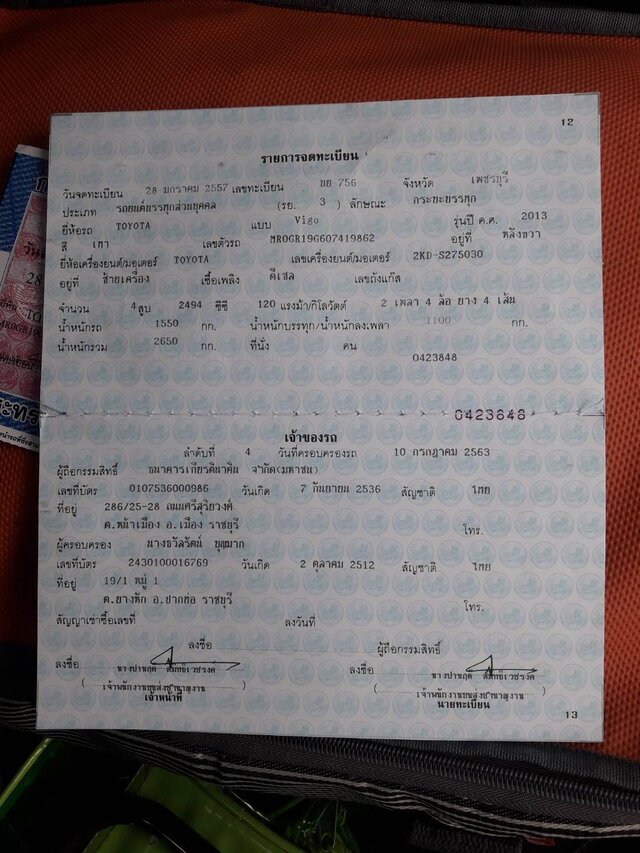 12
รายการจดทะเบียน
วันจดทะเบียน 28 มกราคม 2557 เลขทะเบียน ขย 756 จังหวัด เพชรบุรี
ประเภท รถยนต์บรรทุกส่วนบุคคล (รย. 3 ) ลักษณะ กระบะบรรทุก
ยี่ห้อรถ TOYOTA แบบ Vigo รุ่นปี ค.ศ. 2013
สี เทา เลขตัวรถ MROGR19G607419862 อยู่ที่ หลังขวา
ยี่ห้อเครื่องยนต์/มอเตอร์ TOYOTA เลขเครื่องยนต์/มอเตอร์ 2KD-S275030
อยู่ที่ ซ้ายเครื่อง เชื้อเพลิง ดีเซล เลขถังแก๊ส
จำนวน 4 สูบ 2494 ซีซี 120 แรงม้า/กิโลวัตต์ 2 เพลา 4 ล้อ ยาง 4 เส้น
น้ำหนักรถ 1550 กก. น้ำหนักบรรทุก/น้ำหนักลงเพลา 1100 กก.
น้ำหนักรวม 2650 กก. ที่นั่ง คน
0423848
0423848
เจ้าของรถ
ลำดับที่ 4 วันที่ครอบครองรถ 10 กรกฎาคม 2563
ผู้ถือกรรมสิทธิ์ ธนาคารเกียรตินาคิน จำกัด(มหาชน)
เลขที่บัตร 0107536000986 วันเกิด 7 กันยายน 2536 สัญชาติ ไทย
ที่อยู่ 286/25-28 ถนนศรีสุริยวงศ์
ต.หน้าเมือง อ.เมือง ราชบุรี โทร.
ผู้ครอบครอง นางธวัลรัตน์
เลขที่บัตร 2430100016769 วันเกิด 2 ตุลาคม 2512 สัญชาติ ไทย
ที่อยู่ 19/1 หมู่ 1
ต.ยางหัก อ.ปากท่อ ราชบุรี โทร.
สัญญาเช่าซื้อเลขที่ ลงวันที่
ลงชื่อ ผู้ถือกรรมสิทธิ์
ลงชื่อ ลงชื่อ
( เจ้าพนักงานขนส่งชำนาญงาน ) ( เจ้าพนักงานขนส่งชำนาญงาน )
เจ้าหน้าที่ นายทะเบียน
13